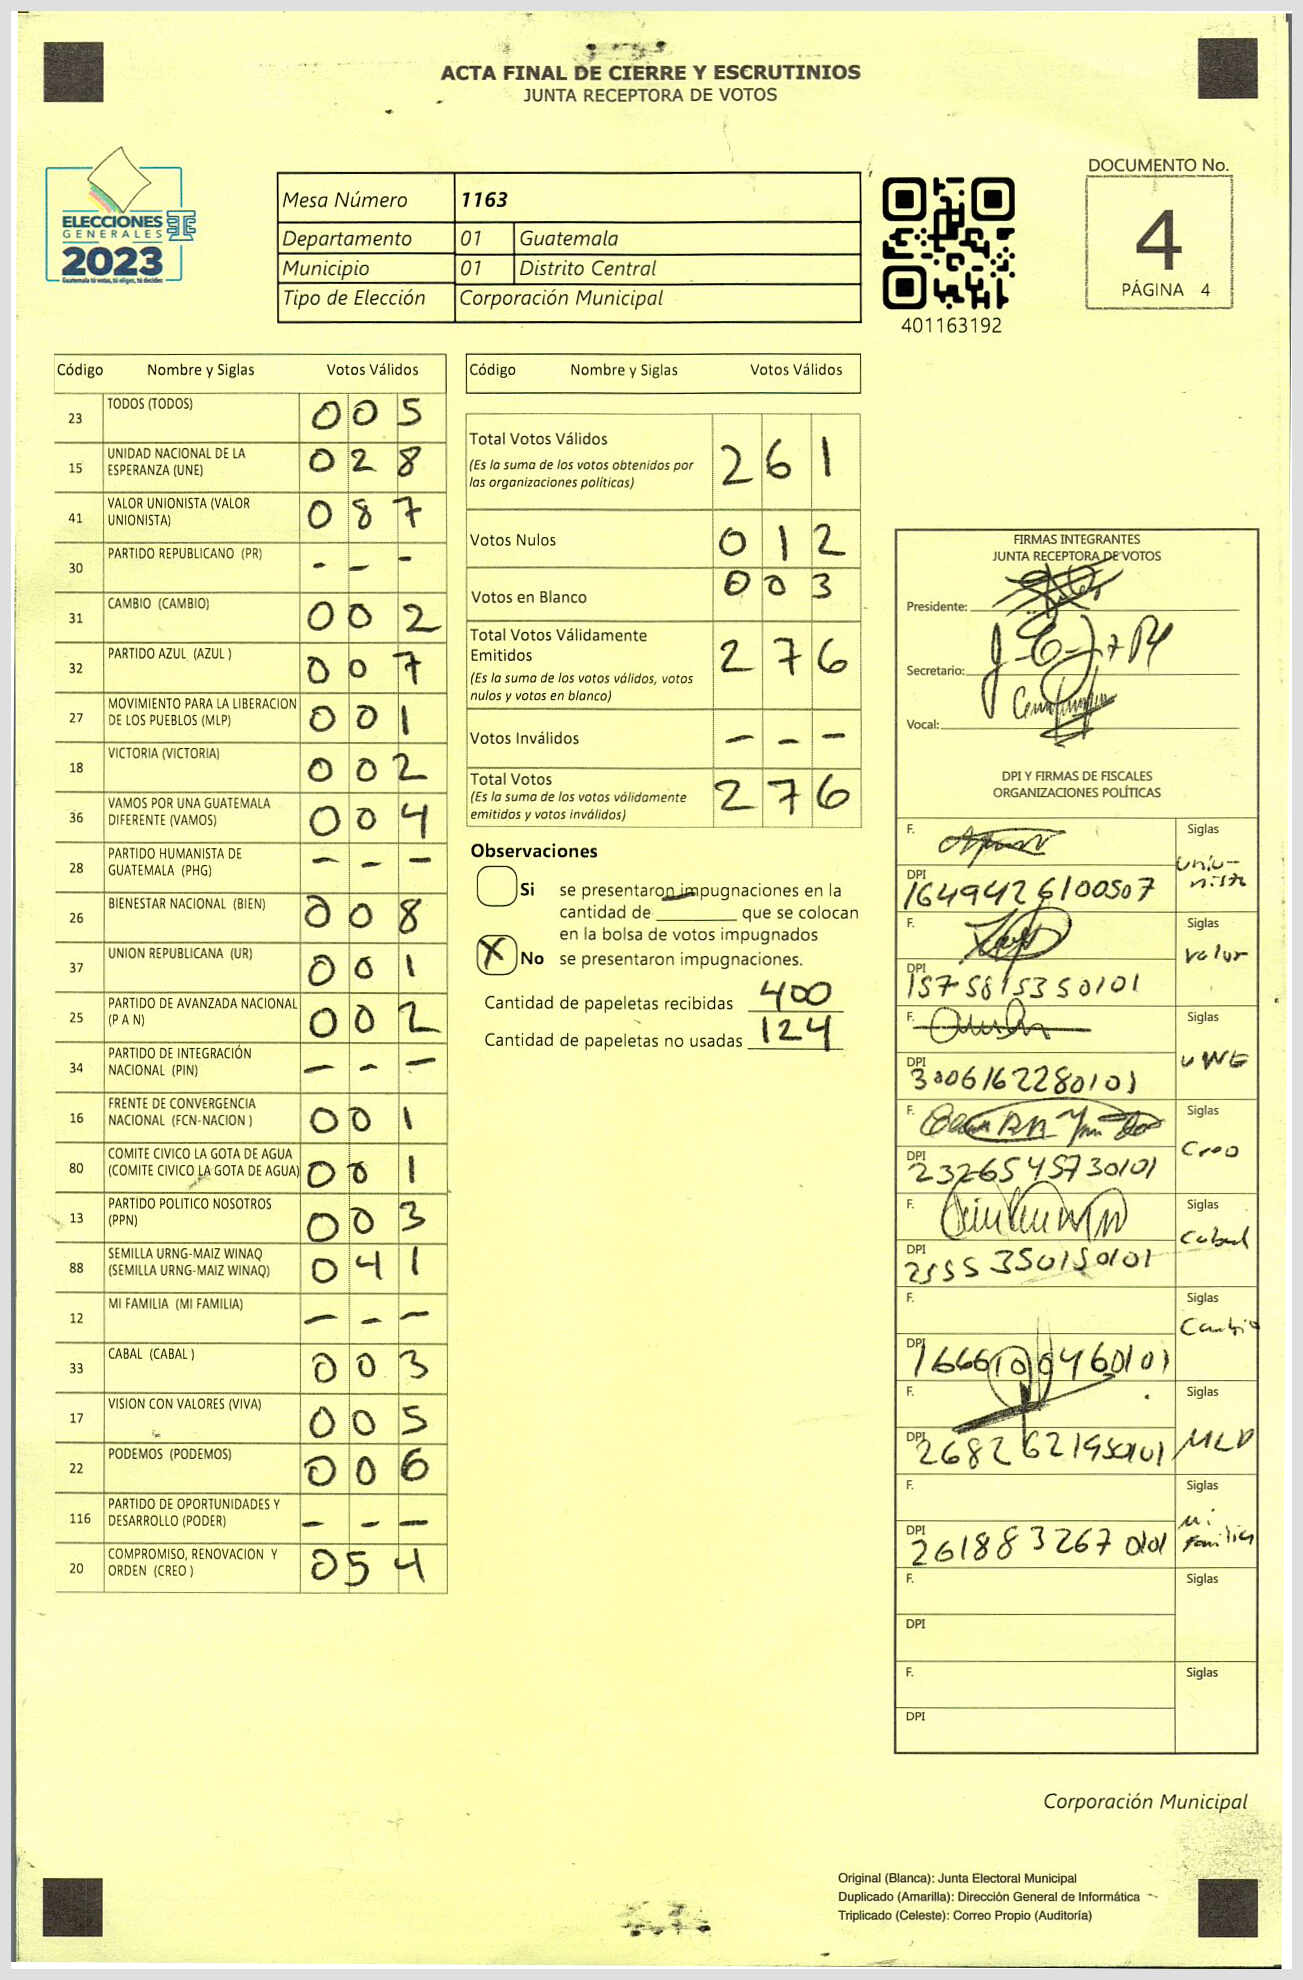 ACTA FINAL DE CIERRE Y ESCRUTINIOS
JUNTA RECEPTORA DE VOTOS
ELECCIONES
GENERALES
2023
Guatemala tú votas, tú eliges, tú decides
Mesa Número 1163
Departamento 01 Guatemala
Municipio 01 Distrito Central
Tipo de Elección Corporación Municipal
401163192
DOCUMENTO No.
4
PÁGINA 4
Código Nombre y Siglas Votos Válidos
23 TODOS (TODOS) 0 0 5
15 UNIDAD NACIONAL DE LA
ESPERANZA (UNE) 0 2 8
41 VALOR UNIONISTA (VALOR
UNIONISTA) 0 8 7
30 PARTIDO REPUBLICANO (PR) - - -
31 CAMBIO (CAMBIO) 0 0 2
32 PARTIDO AZUL (AZUL ) 0 0 7
27 MOVIMIENTO PARA LA LIBERACION
DE LOS PUEBLOS (MLP) 0 0 1
18 VICTORIA (VICTORIA) 0 0 2
36 VAMOS POR UNA GUATEMALA
DIFERENTE (VAMOS) 0 0 4
28 PARTIDO HUMANISTA DE
GUATEMALA (PHG) - - -
26 BIENESTAR NACIONAL (BIEN) 0 0 8
37 UNION REPUBLICANA (UR) 0 0 1
25 PARTIDO DE AVANZADA NACIONAL
(P A N) 0 0 2
34 PARTIDO DE INTEGRACIÓN
NACIONAL (PIN) - - -
16 FRENTE DE CONVERGENCIA
NACIONAL (FCN-NACION ) 0 0 1
80 COMITE CIVICO LA GOTA DE AGUA
(COMITE CIVICO LA GOTA DE AGUA) 0 0 1
13 PARTIDO POLITICO NOSOTROS
(PPN) 0 0 3
88 SEMILLA URNG-MAIZ WINAQ
(SEMILLA URNG-MAIZ WINAQ) 0 4 1
12 MI FAMILIA (MI FAMILIA) - - -
33 CABAL (CABAL ) 0 0 3
17 VISION CON VALORES (VIVA) 0 0 5
22 PODEMOS (PODEMOS) 0 0 6
116 PARTIDO DE OPORTUNIDADES Y
DESARROLLO (PODER) - - -
20 COMPROMISO, RENOVACION Y
ORDEN (CREO ) 0 5 4
Código Nombre y Siglas Votos Válidos
Total Votos Válidos 2 6 1
(Es la suma de los votos obtenidos por
las organizaciones políticas)
Votos Nulos 0 1 2
Votos en Blanco 0 0 3
Total Votos Válidamente
Emitidos 2 7 6
(Es la suma de los votos válidos, votos
nulos y votos en blanco)
Votos Inválidos - - -
Total Votos 2 7 6
(Es la suma de los votos válidamente
emitidos y votos inválidos)
Observaciones
Si se presentaron impugnaciones en la
cantidad de ________ que se colocan
en la bolsa de votos impugnados
X No se presentaron impugnaciones.
Cantidad de papeletas recibidas 400
Cantidad de papeletas no usadas 124
FIRMAS INTEGRANTES
JUNTA RECEPTORA DE VOTOS
Presidente:
Secretario:
Vocal:
DPI Y FIRMAS DE FISCALES
ORGANIZACIONES POLÍTICAS
F. Siglas
Unio-
nista
DPI 1649426100507
F. Siglas
Valor
DPI 1575815350101
F. Siglas
UNE
DPI 3006162280101
F. Siglas
Creo
DPI 2326545730101
F. Siglas
Cabal
DPI 2555350150101
F. Siglas
Cambio
DPI 1666100460101
F. Siglas
MLP
DPI 2682621950101
F. Siglas
Mi
Familia
DPI 2618832670101
F. Siglas
DPI
F. Siglas
DPI
Corporación Municipal
Original (Blanca): Junta Electoral Municipal
Duplicado (Amarilla): Dirección General de Informática
Triplicado (Celeste): Correo Propio (Auditoría)